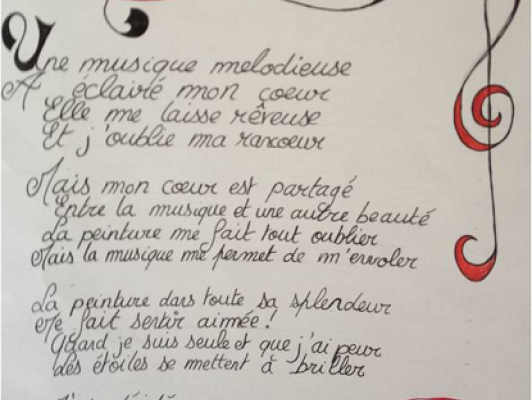 Une musique melodieuse
A éclairé mon coeur
Elle me laisse rêveuse
Et j'oublie ma rancoeur
Mais mon coeur est partagé
Entre la musique et une autre beauté
La peinture me fait tout oublier
Mais la musique me permet de m'envoler
La peinture dans toute sa splendeur
Me fait sentir aimée !
Quand je suis seule et que j'ai peur
Les étoiles se mettent à briller